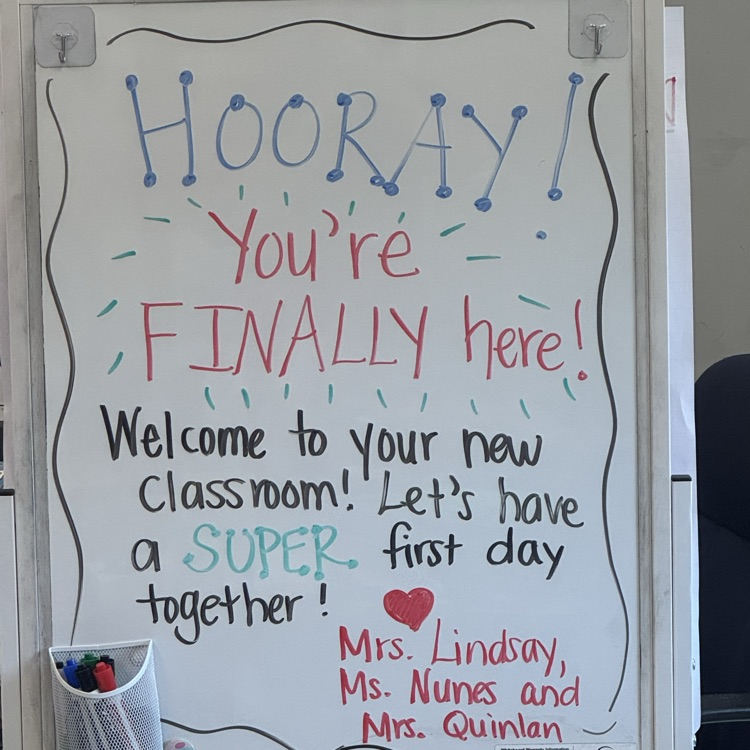 HOORAY!
You're
FINALLY here!
Welcome to your new
classroom! Let's have
a SUPER first day
together!
Mrs. Lindsay,
Ms. Nunes and
Mrs. Quinlan